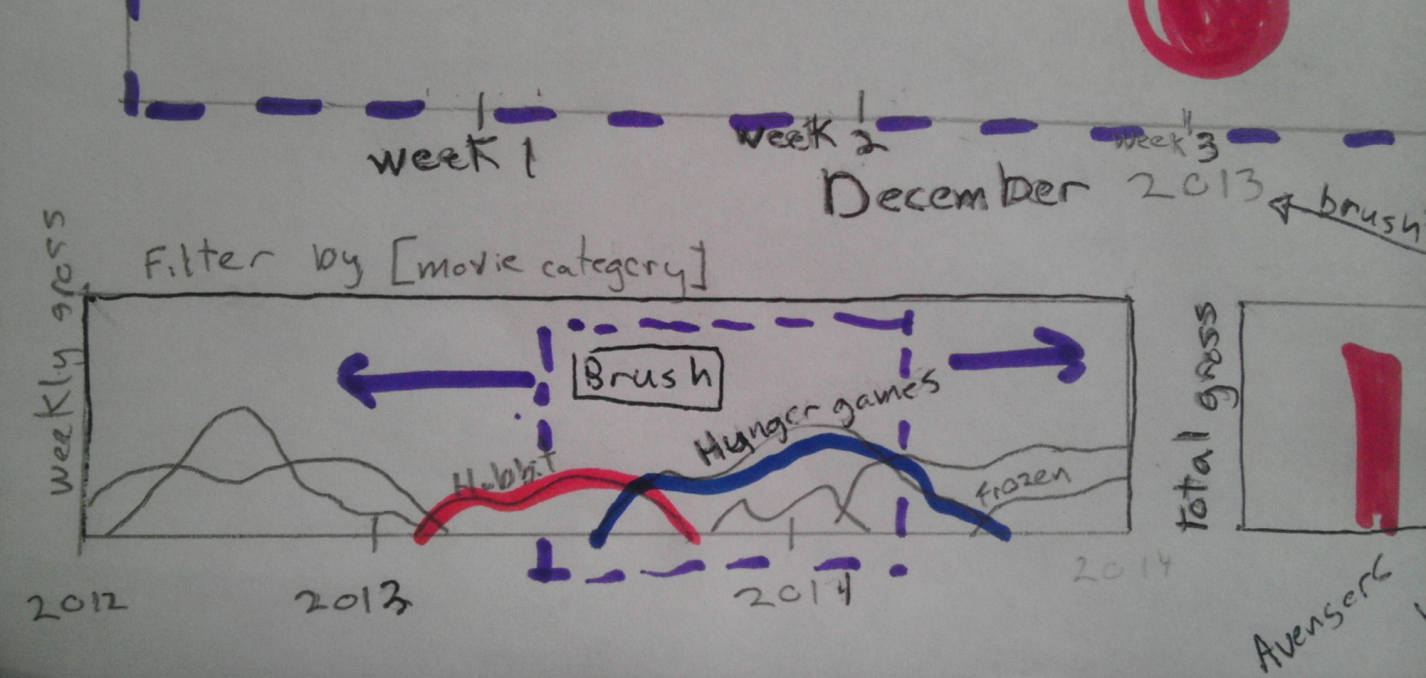 week 1
week 2
week 3
December 2013
brush
Filter by [movie category]
weekly gross
Brush
Hobbit
Hunger games
frozen
2012
2013
2014
2014
total gross
Avengers